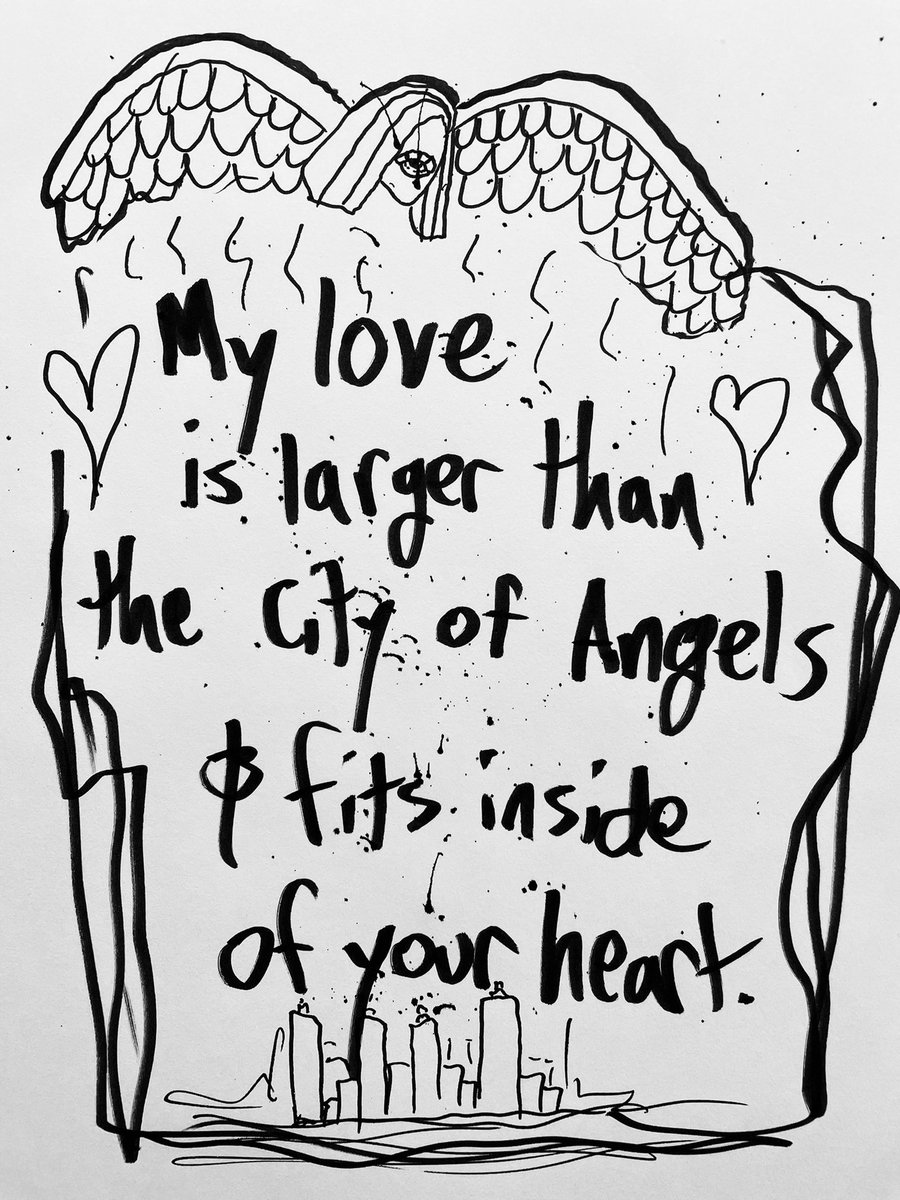 My love
is larger than
the City of Angels
& fits inside
of your heart.